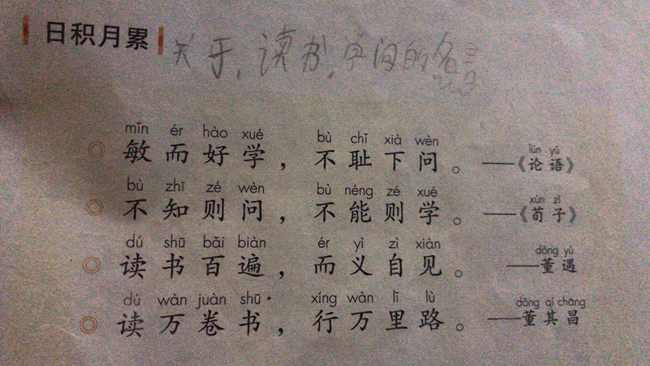 日积月累 关于,读书,学问的名言
mǐn ér hào xué bù chǐ xià wèn lún yǔ
敏而好学，不耻下问。——《论语》
bù zhī zé wèn bù néng zé xué xún zǐ
不知则问，不能则学。——《荀子》
dú shū bǎi biàn ér yì zì xiàn dǒng yù
读书百遍，而义自见。——董遇
dú wàn juàn shū xíng wàn lǐ lù dǒng qí chāng
读万卷书，行万里路。——董其昌